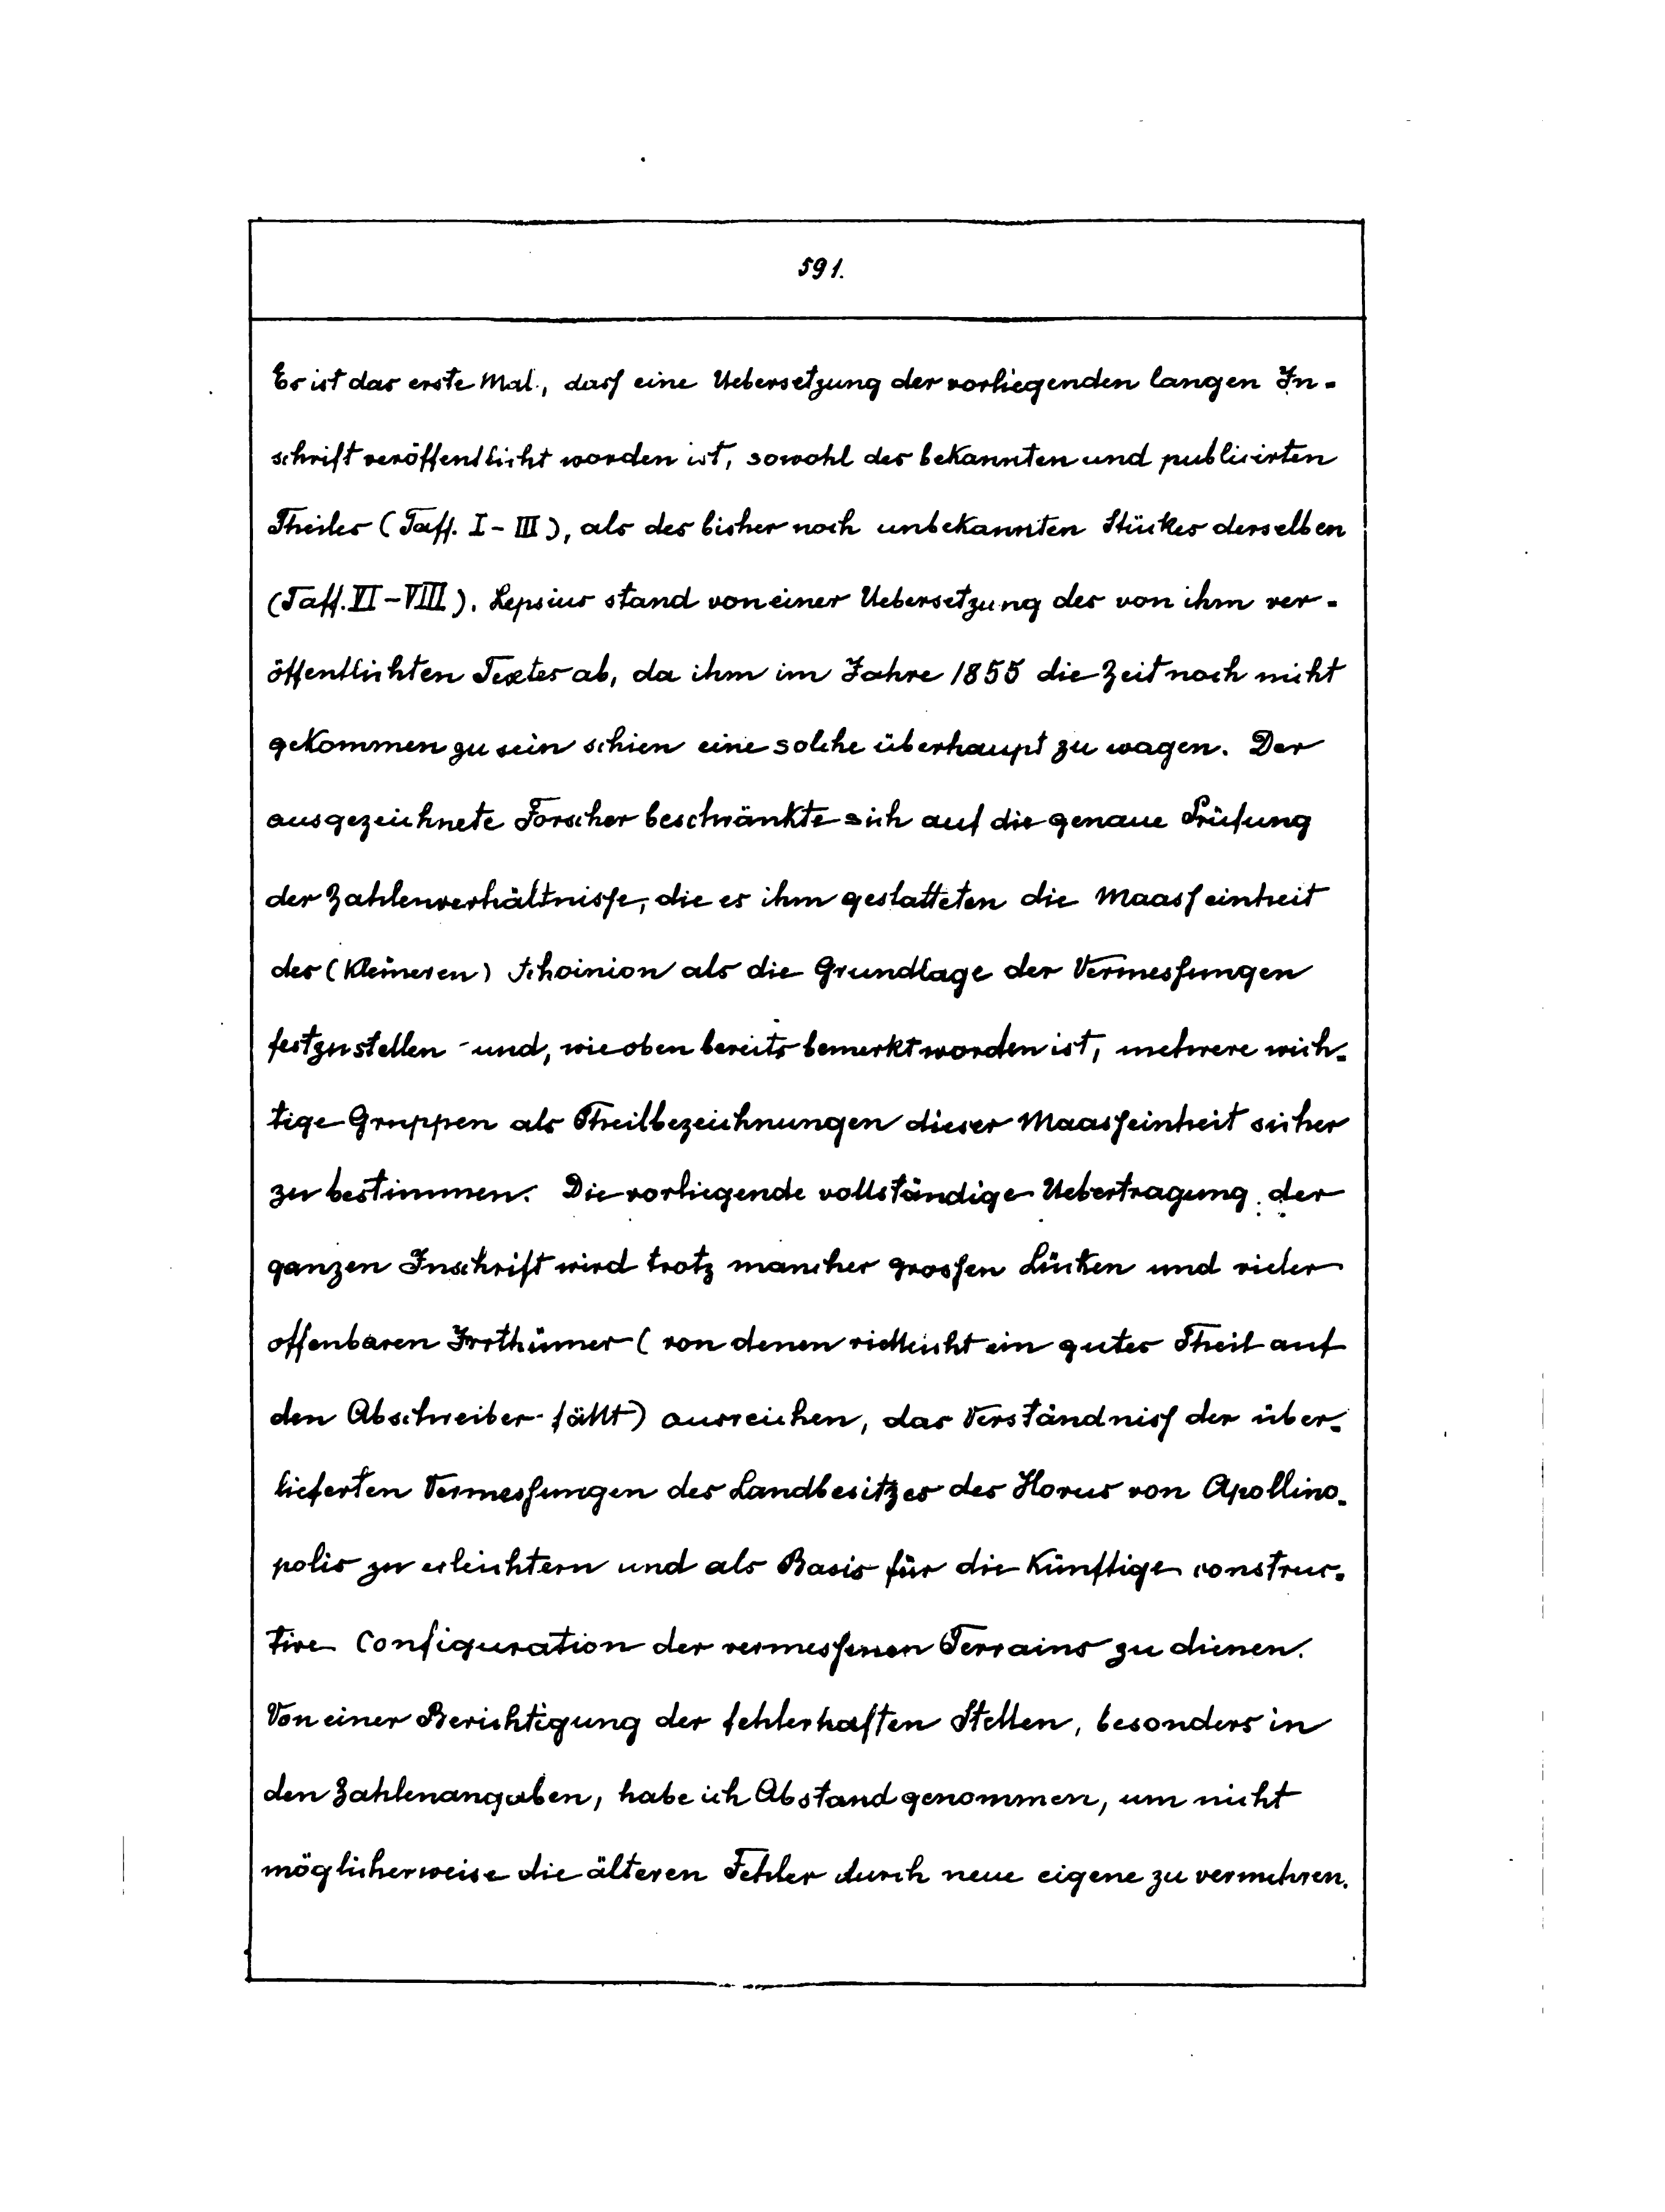 591.
Es ist das erste Mal, dass eine Uebersetzung der vorliegenden langen In-
schrift veröffentlicht worden ist, sowohl des bekannten und publicirten
Theiles (Taff. I - III), als des bisher noch unbekannten Stückes derselben
(Taff. VI - VIII). Lepsius stand von einer Uebersetzung des von ihm ver-
öffentlichten Textes ab, da ihm im Jahre 1855 die Zeit noch nicht
gekommen zu sein schien eine solche überhaupt zu wagen. Der
ausgezeichnete Forscher beschränkte sich auf die genaue Prüfung
der Zahlenverhältnisse, die es ihm gestatteten die Maasseinheit
des (kleineren) Schoinion als die Grundlage der Vermessungen
festzustellen und, wie oben bereits bemerkt worden ist, mehrere wich-
tige Gruppen als Theilbezeichnungen dieser Maasseinheit sicher
zu bestimmen. Die vorliegende vollständige Uebertragung der
ganzen Inschrift wird trotz mancher grossen Lücken und vieler
offenbaren Irrthümer (von denen vielleicht ein guter Theil auf
den Abschreiber fällt) ausreichen, das Verständniss der über-
lieferten Vermessungen des Landbesitzes des Horus von Apollino-
polis zu erleichtern und als Basis für die künftige construc-
tive Configuration der vermessenen Terrains zu dienen.
Von einer Berichtigung der fehlerhaften Stellen, besonders in
den Zahlenangaben, habe ich Abstand genommen, um nicht
möglicherweise die älteren Fehler durch neue eigene zu vermehren.